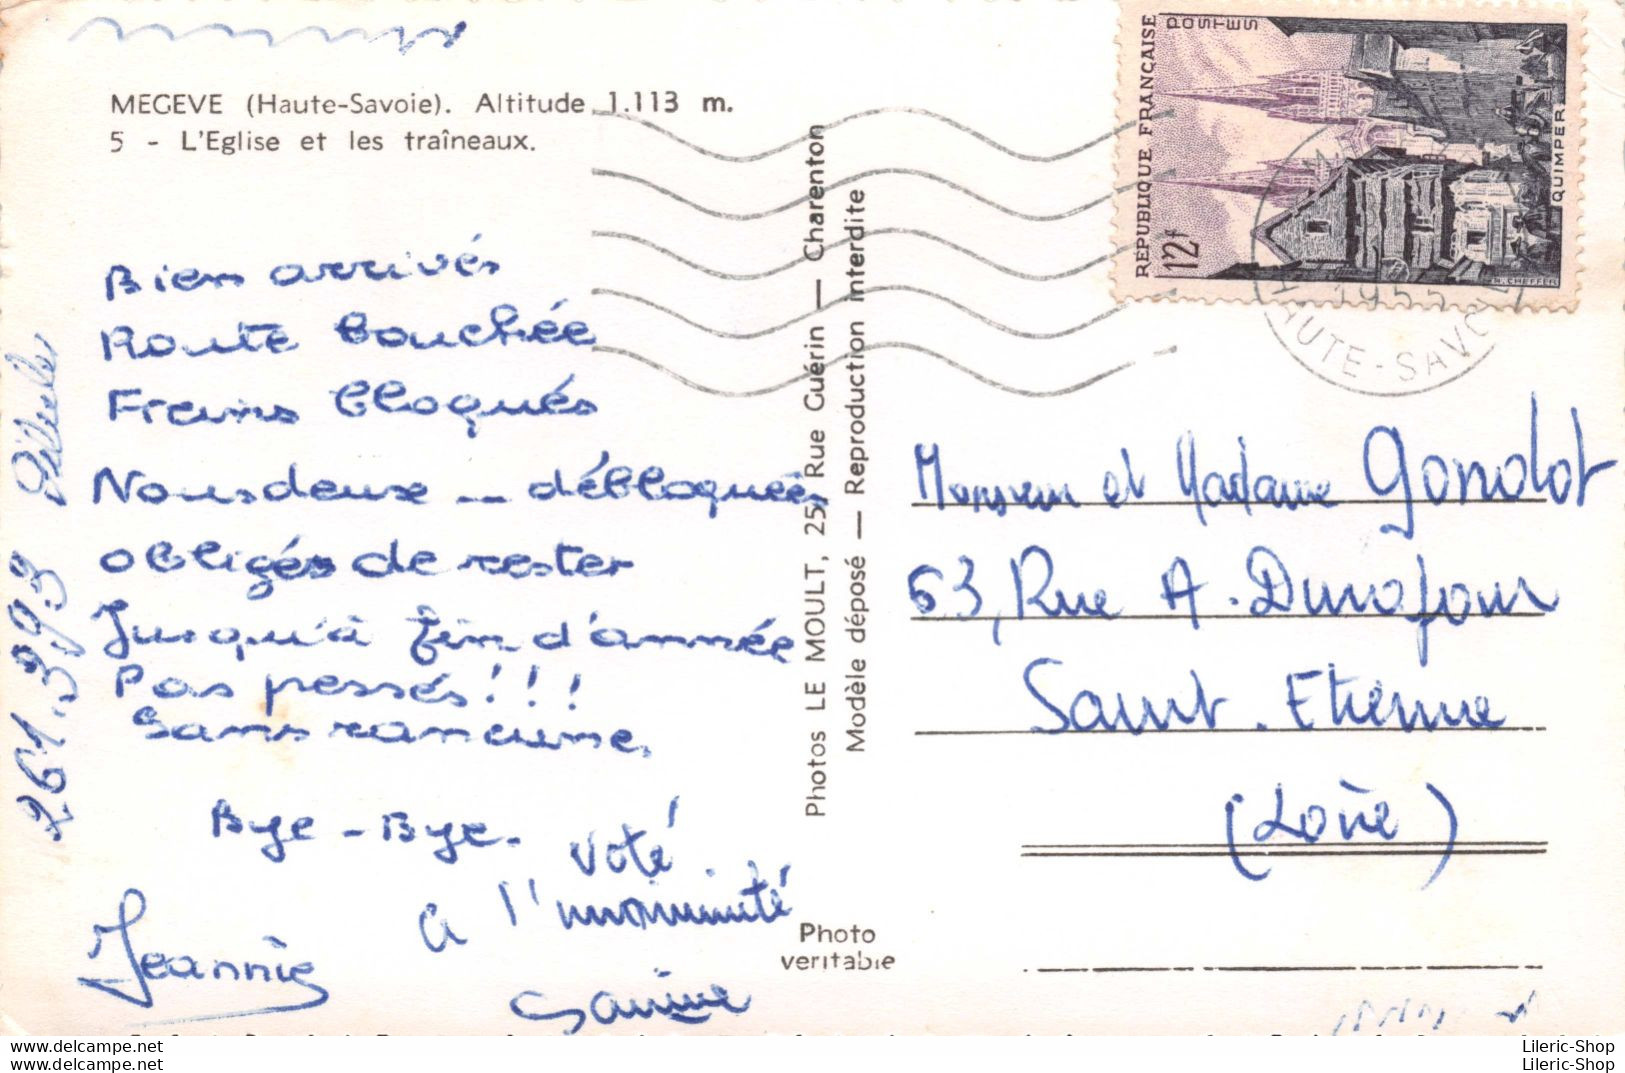 MEGEVE (Haute-Savoie). Altitude 1.113 m.
5 - L'Eglise et les traîneaux.
REPUBLIQUE FRANÇAISE
POSTES
12f
QUIMPER
H. CHEFFER
1955
HAUTE-SAVOIE
Bien arrivés
Route bouchée
Freins bloqués
Nous deux — débloquées
obligés de rester
Jusqu'à fin d'année
Pas pressés!!!
Sans rancune.
Bye-Bye.
Voté
à l'unanimité
Jeannie
261.393
Photos LE MOULT, 25, Rue Guérin — Charenton
Modèle déposé — Reproduction interdite
Monsieur et Madame Gondot
63, Rue A. Durafour
Saint-Etienne
(Loire)
Photo
veritable
Lileric-Shop
Lileric-Shop